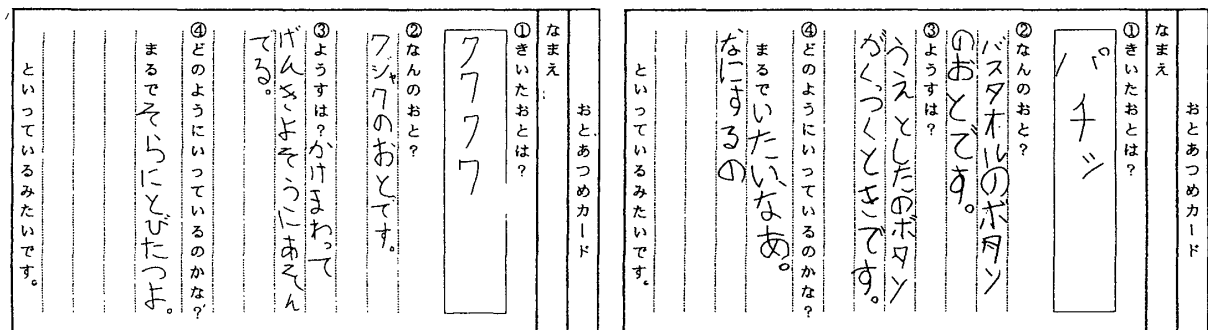 おとあつめカード
なまえ
①きいたおとは?
バチッ
②なんのおと?
バスタオルのボタン
のおとです。
③ようすは?
うえとしたのボタン
がくっつくときです。
④どのようにいっているのかな?
まるでいたい、なあ。
なにするの
といっているみたいです。
おとあつめカード
なまえ
①きいたおとは?
クククク
②なんのおと?
クジャクのおとです。
③ようすは?かけまわって
げんきよそうにあそん
でる。
④どのようにいっているのかな?
まるでそらにとびたつよ。
といっているみたいです。